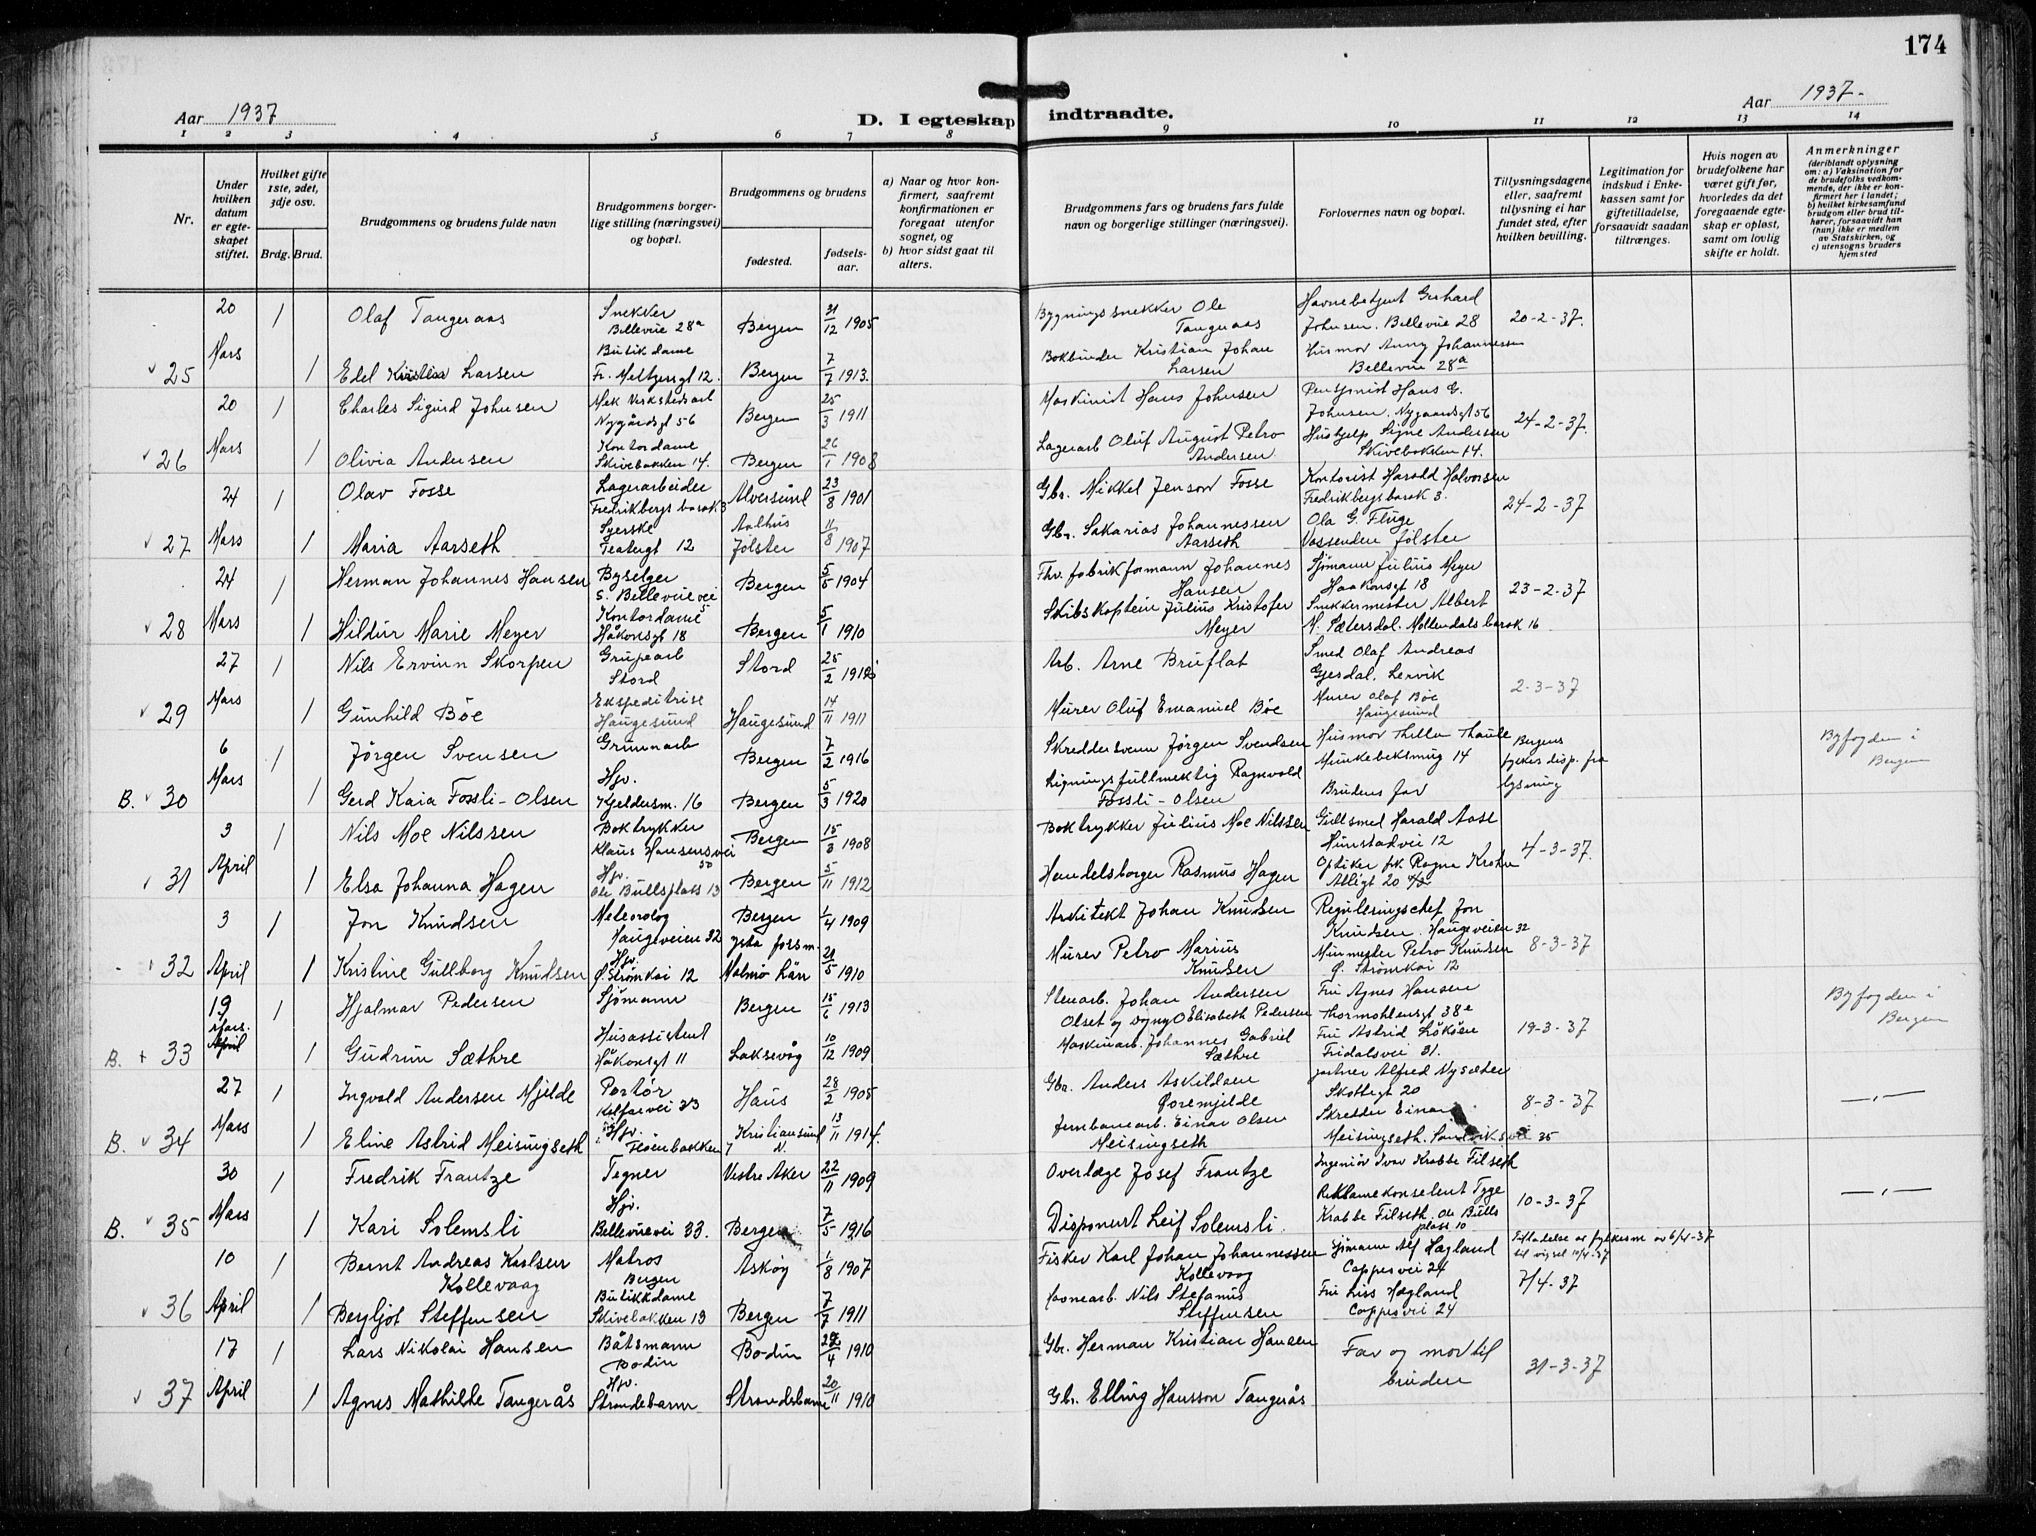 174
Aar 1937
D. I egteskap indtraadte.
Aar 1937-
1 2 3 4 5 6 7 8 9 10 11 12 13 14
Nr.
Under hvilken datum er egteskapet stiftet.
Hvilket gifte 1ste, 2det, 3dje osv.
Brdg. Brud.
Brudgommens og brudens fulde navn
Brudgommens borgerlige stilling (næringsvei) og bopæl.
Brudgommens og brudens
fødested.
fødselsaar.
a) Naar og hvor konfirmert, saafremt konfirmationen er foregaat utenfor sognet, og
b) hvor sidst gaat til alters.
Brudgommens fars og brudens fars fulde navn og borgerlige stillinger (næringsvei).
Forlovernes navn og bopæl.
Tillysningsdagene eller, saafremt tillysning ei har fundet sted, efter hvilken bevilling.
Legitimation for indskud i Enkekassen samt for giftetilladelse, forsaavidt saadan tiltrænges.
Hvis nogen av brudefolkene har været gift før, hvorledes da det foregaaende egteskap er opløst, samt om lovlig skifte er holdt.
Anmerkninger
(deriblandt oplysning om: a) Vaksination for de brudefolks vedkommende, der ikke er konfirmert her i landet;
b) hvilket kirkesamfund brudgom eller brud tilhører, forsaavidt han (hun) ikke er medlem av Statskirken, og
c) utensogns bruders hjemsted
20 1 Olaf Tangeraas Snekker Bellevue 28a Bergen 31/12 1905 Bygningssnekker Ole Tangeraas Havnebetjent Gerhard Johnsen. Bellevue 28 20-2-37.
25 Mars 1 Edel Larsen Butikdame Fr. Meltzersgt 12. Bergen 7/7 1913. Bokbinder Kristian Johan Larsen Husmor Anny Johannessen Bellevue 28a
20 1 Charles Sigurd Johnsen Mek Verkstedsarb Nygårdsgt 56 Bergen 25/3 1911 Maskinist Hans Johnsen Hans G. Johnsen. Nygaardsgt 56 24-2-37.
26 Mars 1 Olivia Andersen Kontordame Skivebakken 14. Bergen 26/1 1908 Lagerarb Oluf August Petro Andersen Hushjelp Signe Andersen Skivebakken 14.
24 1 Olav Fosse Lagerarbeider Fredrikbergs barak 3 Alversund 23/8 1901 Gbr. Mikkel Jenson Fosse Kontorist Harald Halvorsen Fredrikbergsbarak 3. 24-2-37
27 Mars 1 Maria Aarseth Syerske Teatergt 12 Aalhus Jølster 11/8 1907 Gbr. Sakarias Johannessen Aarseth Ola G. Fluge Vassenden Jølster
24 1 Herman Johannes Hansen Byselger S. Bellevuevei 5 Bergen 5/5 1904 Fhv. fabrikformann Johannes Hansen Sjømann Julius Meyer Haakonsgt 18 23-2-37
28 Mars 1 Hildur Marie Meyer Kontordame Håkonsgt 18 Bergen 5/1 1910 Skibskaptein Julius Kristofer Meyer Snekkermester Albert M. Sætersdal. Møllendals barak 16
27 1 Nils Ervinn Skorpen Grupearb Stord Stord 25/2 Arb. Arne Bruflat Smed Olaf Andreas Gjesdal, Lervik 2-3-37
29 Mars 1 Gunhild Bøe Ekspeditrise Haugesund Haugesund 14/11 1911 Murer Oluf Emanuel Bøe Murer Olaf Bøe Haugesund
6 1 Jørgen Svensen Grunnarb Bergen 7/2 1916 Skreddersvenn Jørgen Svendsen Husmor Thilla Thaule Munkebeksmug 14 Bergens fylkes disp. fra lysning Byfogden i Bergen
B. 30 Mars 1 Gerd Kaia Fossli-Olsen Hjv. Kjeldersm. 16 Bergen 5/3 1920 Ligningsfullmektig Ragnvald Fossli-Olsen Brudens far
3 1 Nils Moe Nilssen Boktrykker Klaus Hansensvei 50 Bergen 15/3 1908 Boktrykker Julius Moe Nilssen Gullsmed Harald Aase Hunstadvei 12 4-3-37.
31 April 1 Elsa Johanna Hagen Hjv. Ole Bullsplass 13 Bergen 5/11 1912 Handelsborger Rasmus Hagen Optiker frk. Ragna Krohn
3 1 Jon Knudsen Meteorolog Haugeveien 32 Bergen 1/4 1909 Arkitekt Johan Knudsen Reguleringschef Jon Knudsen. Haugeveien 32 8-3-37
32 April 1 Kristine Gullborg Knudsen Hjv. Ø. Strømkai 12 Malmø Län 1910 Murer Petro Marius Knudsen Murmester Petro Knudsen Ø. Strømkai 12
19 Mars. April 1 Hjalmar Pedersen Sjømann Bergen 15/6 1913 Stenarb. Johan Andersen Olset og Elisabeth Pedersen Fru Agnes Hansen Thormøhlensgt 38e 19-3-37 Byfogden i Bergen
B. + 33 1 Gudrun Sæthre Husassistent Håkonsgt 11 Laksevåg 10/12 1909 Maskinarb. Johannes Gabriel Sæthre Fru Astrid Løkøen Fridalsvei 31.
27 1 Ingvald Andersen Mjelde Portør Kalfarvei 33 Haus 28/2 1905 Gbr. Anders Askildsen Øvremjelde gartner Alfred Nysæter Skottegt 20 8-3-37 —„—
B. 34 Mars 1 Eline Astrid Meisingseth Hjv. Fløenbakken 7 Kristiansund N. 13/11 1914. Jernbanearb. Einar Olsen Meisingseth Skredder Einar Meisingseth. Sandviksvei 35
30 1 Fredrik Frantze Tegner Vestre Aker 22/11 1909 Overlæge Josef Frantze Ingeniør Ivar Krabbe Filseth 10-3-37 —„—
B. 35 Mars 1 Kari Solemsli Hjv. Bellevuevei 33. Bergen 7/5 1916 Disponent Leif Solemsli. Reklamekonsulent Tyge Krabbe Filseth. Ole Bulls plass 10
10 1 Bernt Andreas Karlsen Kollevaag Matros Bergen Askøy 1/8 1907 Fisker Karl Johan Johannessen Kollevaag Sjømann Alf Hagland Coppesvei 24 Tillatelse av fylkesm av 6/4-37 til vigsel 10/4-37 7/4-37
36 April 1 Bergljot Steffensen Butikkdame Skivebakken 13 Bergen 7/7 1911 Havnearb. Nils Stefanus Steffensen Fru Liss Hagland Coppesvei 24
17 1 Lars Nikolai Hansen Båtsmann Bodin Bodin 1910 Gbr. Herman Kristian Hansen Far og mor til bruden 31-3-37
37 April 1 Agnes Mathilde Tangerås Hjv. Strandebarm Strandebarm 20/11 1910 Gbr. Elling Hansson Tangerås